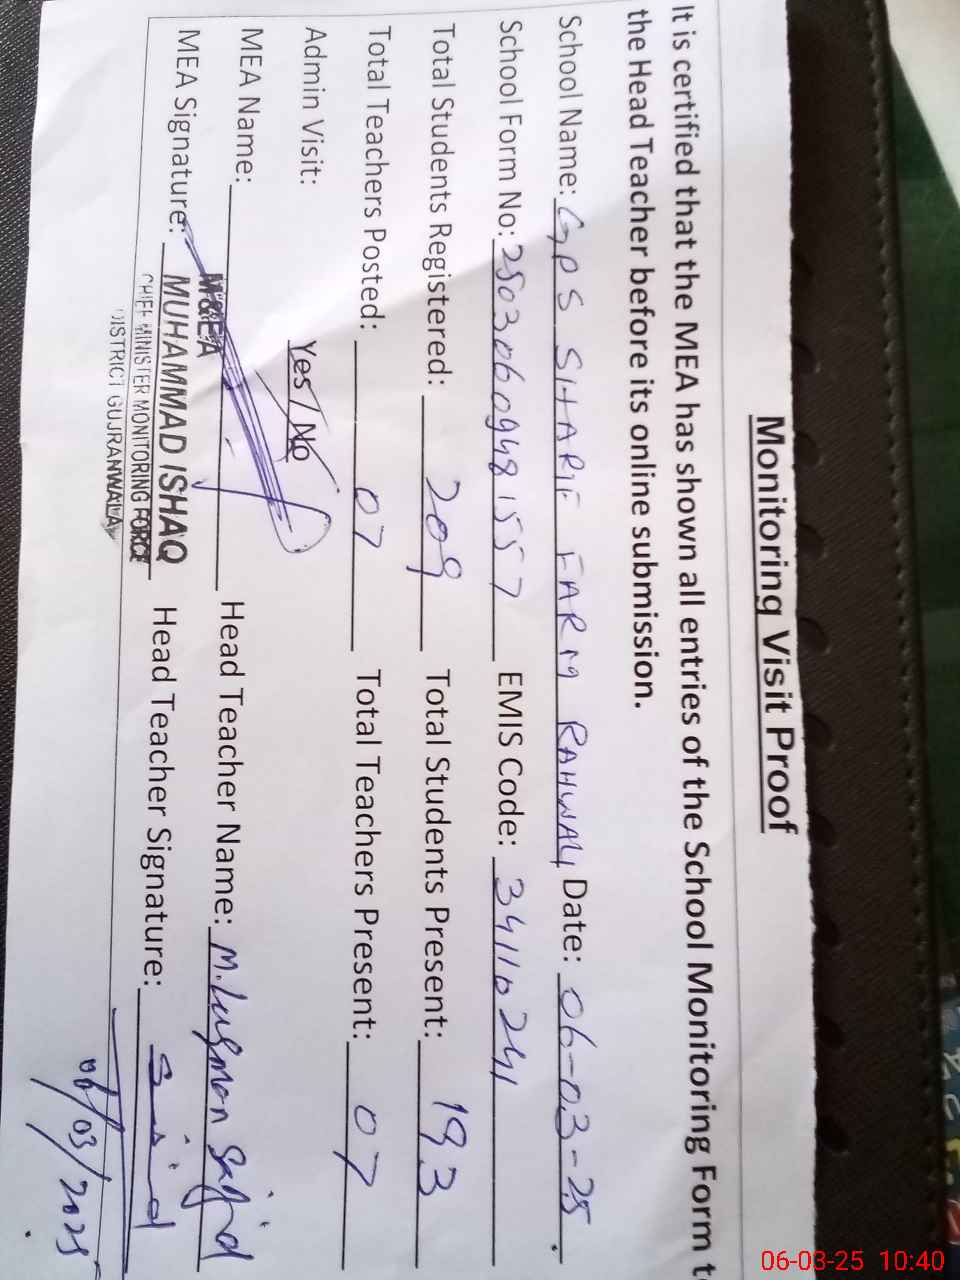 Monitoring Visit Proof
It is certified that the MEA has shown all entries of the School Monitoring Form t
the Head Teacher before its online submission.
School Name: GPS SHARIF FARM RAHWALI Date: 06-03-25
School Form No: 25030609481557 EMIS Code: 34110241
Total Students Registered: 209 Total Students Present: 193
Total Teachers Posted: 07 Total Teachers Present: 07
Admin Visit: Yes / No
MEA Name: Head Teacher Name: M. Luqman Sajid
MEA Signature: Head Teacher Signature: Sajid
M&EA
MUHAMMAD ISHAQ
CHIEF MINISTER MONITORING FORCE
DISTRICT GUJRANWALA
06/03/2025
06-03-25 10:40